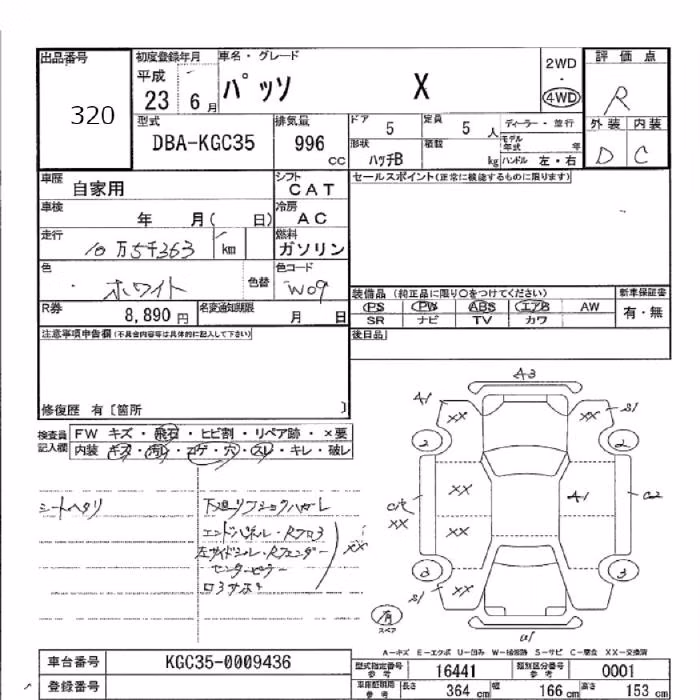 出品番号
320
初度登録年月
平成
23 6月
車名・グレード
パッソ X
2WD
・
4WD
評価点
R
外装 内装
D C
型式
DBA-KGC35
排気量
996
cc
ドア
5
定員
5 人
ディーラー・並行
モデル
年式 年
形状
ハッチB
積載
kg
ハンドル 左・右
車歴
自家用
シフト
CAT
セールスポイント(正常に機能するものに限ります)
車検
年 月( 日)
冷房
AC
走行
10万5千363 km
燃料
ガソリン
色
ホワイト
色替
色コード
W09
装備品 (純正品に限り○をつけてください)
新車保証書
PS PW ABS エアB AW
有・無
SR ナビ TV カワ
R券
8,890 円
名変通知期限
月 日
後日品
注意事項申告欄(不具合内容等は具体的に記入して下さい)
修復歴 有〔箇所 〕
検査員
記入欄
FW キズ・飛石・ヒビ割・リペア跡・×要
内装 キズ・汚れ・コゲ・穴・スレ・キレ・破レ
シートヘタリ
エンドパネル・Rフロ3
左サイドシル・Rフェンダー
センターピラー
XX
A3
A1
XX
XX
S1
2
2
XX
XX
XX
A1
C2
3
3
S1
XX
有
スペア
A1
A-キズ E-エクボ U-凹み W-補修跡 S-サビ C-腐食 XX-交換済
車台番号
KGC35-0009436
登録番号
型式指定番号
参考
16441
類別区分番号
参考
0001
車庫証明用
参考
長さ
364 cm
幅
166 cm
高さ
153 cm